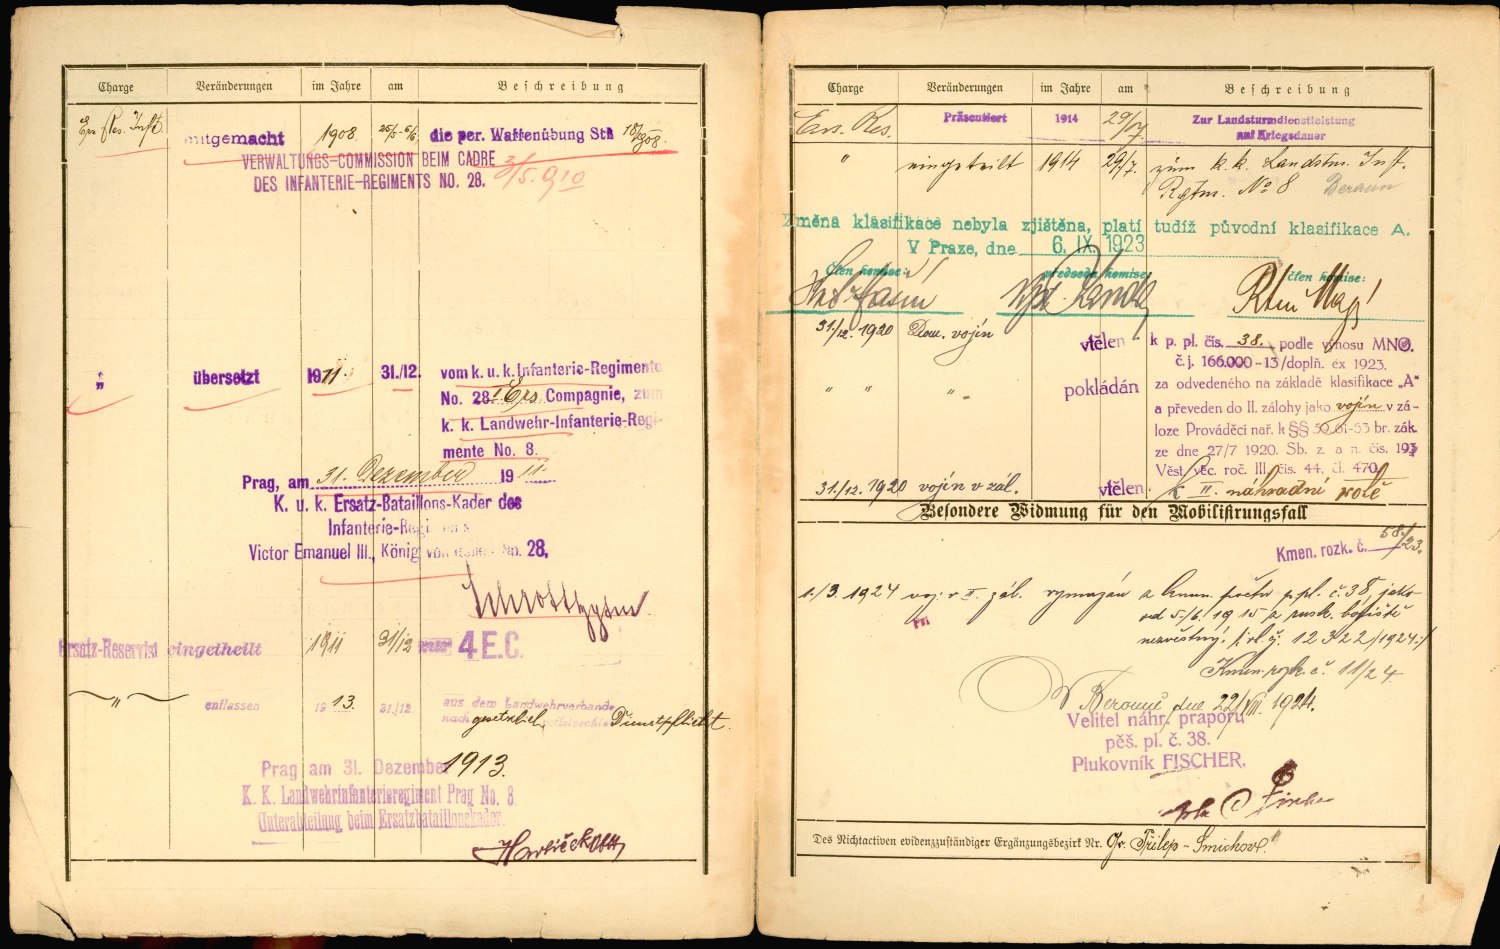 Charge Veränderungen im Jahre am Beschreibung
Ers. Res. Inft. mitgemacht 1908 die per. Waffenübung
VERWALTUNGS-COMMISSION BEIM CADRE
DES INFANTERIE-REGIMENTS NO. 28. 3/5. 910
" übersetzt 1911 31./12. vom k. u. k. Infanterie-Regimente
No. 28 Ers. Compagnie, zum
k. k. Landwehr-Infanterie-Regi-
mente No. 8.
Prag, am 31. Dezember 1911.
K. u. k. Ersatz-Bataillons-Kader des
Infanterie-Regiments
Victor Emanuel III., König von Italien No. 28,
Ersatz-Reservist eingetheilt 1911 31/12 4 E.C.
" entlassen 1913. 31./12 aus dem Landwehrverbande
nach gesetzlich Dienstpflicht.
Prag am 31. Dezember 1913.
K. K. Landwehrinfanterieregiment Prag No. 8.
Unterabteilung beim Ersatzbataillonskader.
Charge Veränderungen im Jahre am Beschreibung
Ers. Res. Präsentiert 1914 29/7 Zur Landsturmdienstleistung
auf Kriegsdauer
" eingeteilt 1914 29/7. zum k. k. Landstm. Inft.
Rgtm. No 8 Beraun
Změna klasifikace nebyla zjištěna, platí tudíž původní klasifikace A.
V Praze, dne 6. IX. 1923
Člen komise: předseda komise člen komise:
31./12. 1920 Dom. vojín vtělen k p. pl. čís. 38. podle výnosu MNO.
č.j. 166.000-13/doplň. ex 1923.
" " " pokládán za odvedeného na základě klasifikace „A“
a převeden do II. zálohy jako vojín v zá-
loze Prováděcí nař. k §§ 50, 61-63 br. zák.
ze dne 27/7 1920. Sb. z. a n. čís. 193
Věst. věc. roč. III. čís. 44, čl. 470.
31./12. 1920 vojín v zál. vtělen k II. náhradní rotě
Besondere Widmung für den Mobilisirungsfall
Kmen. rozk. č. 58/23.
1./3. 1924 voj. v II. zál. vymazán z kmen. počtu p. pl. č. 38, jako
od 5./6. 1915 z rusk. bojiště
nezvěstný. /: vl. č. 12322/1924 :/
Kmen. rozk. č. 11/24.
V Berouně dne 22/VII. 1924.
Velitel náhr. praporu
pěš. pl. č. 38.
Plukovník FISCHER.
Des Nichtactiven evidenzzuständiger Ergänzungsbezirk Nr. Gr. Přílep - Smichov.